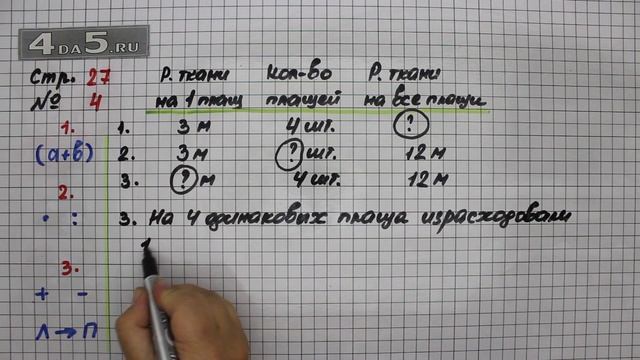 4DA5.RU
Стр. 27
№ 4
1.
(а+в)
2.
· :
3.
+ -
Л → П
Р. ткани Кол-во Р. ткани
на 1 плащ плащей на все плащи
1. 3 м 4 шт. ?
2. 3 м ? шт. 12 м
3. ? м 4 шт. 12 м
3. На 4 одинаковых плаща израсходовали
1